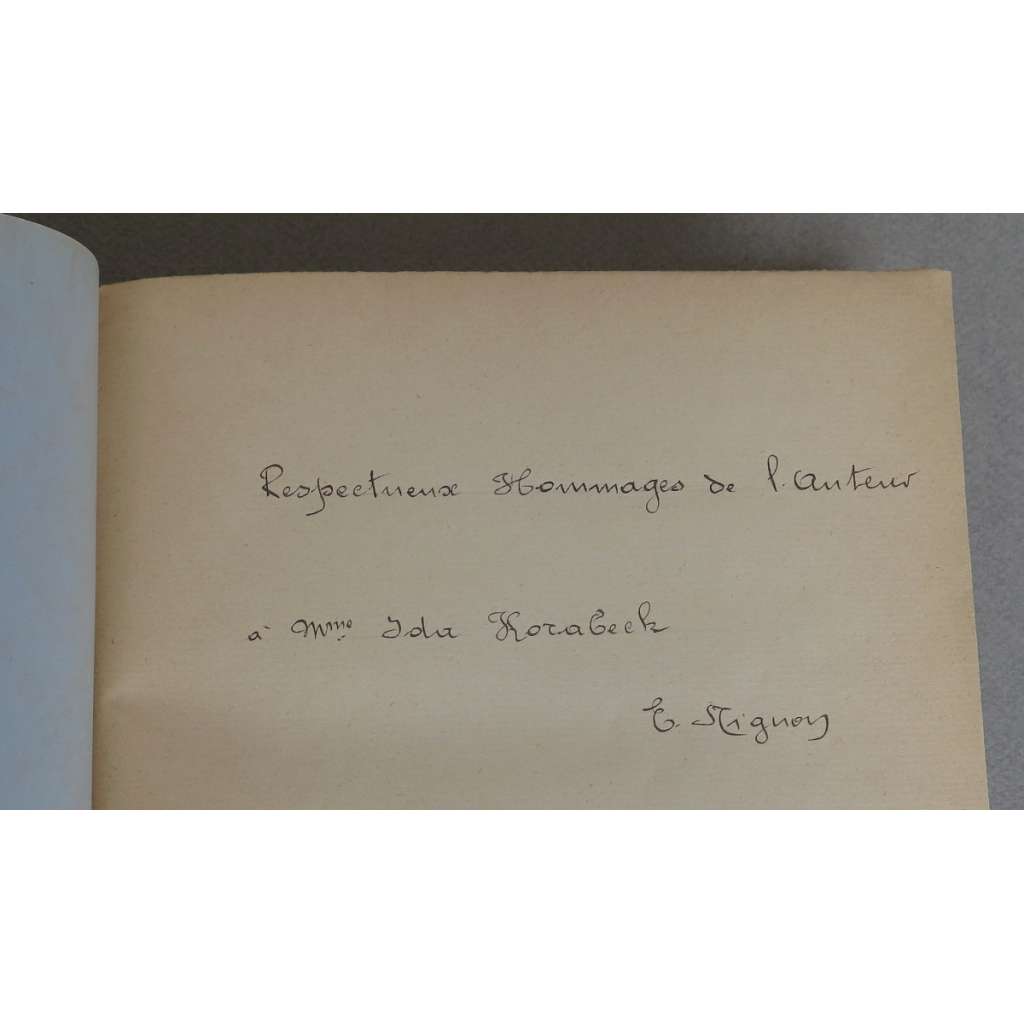 Respectueux Hommages de l'Auteur
à Mme Ida Korabeck
E. Mignon